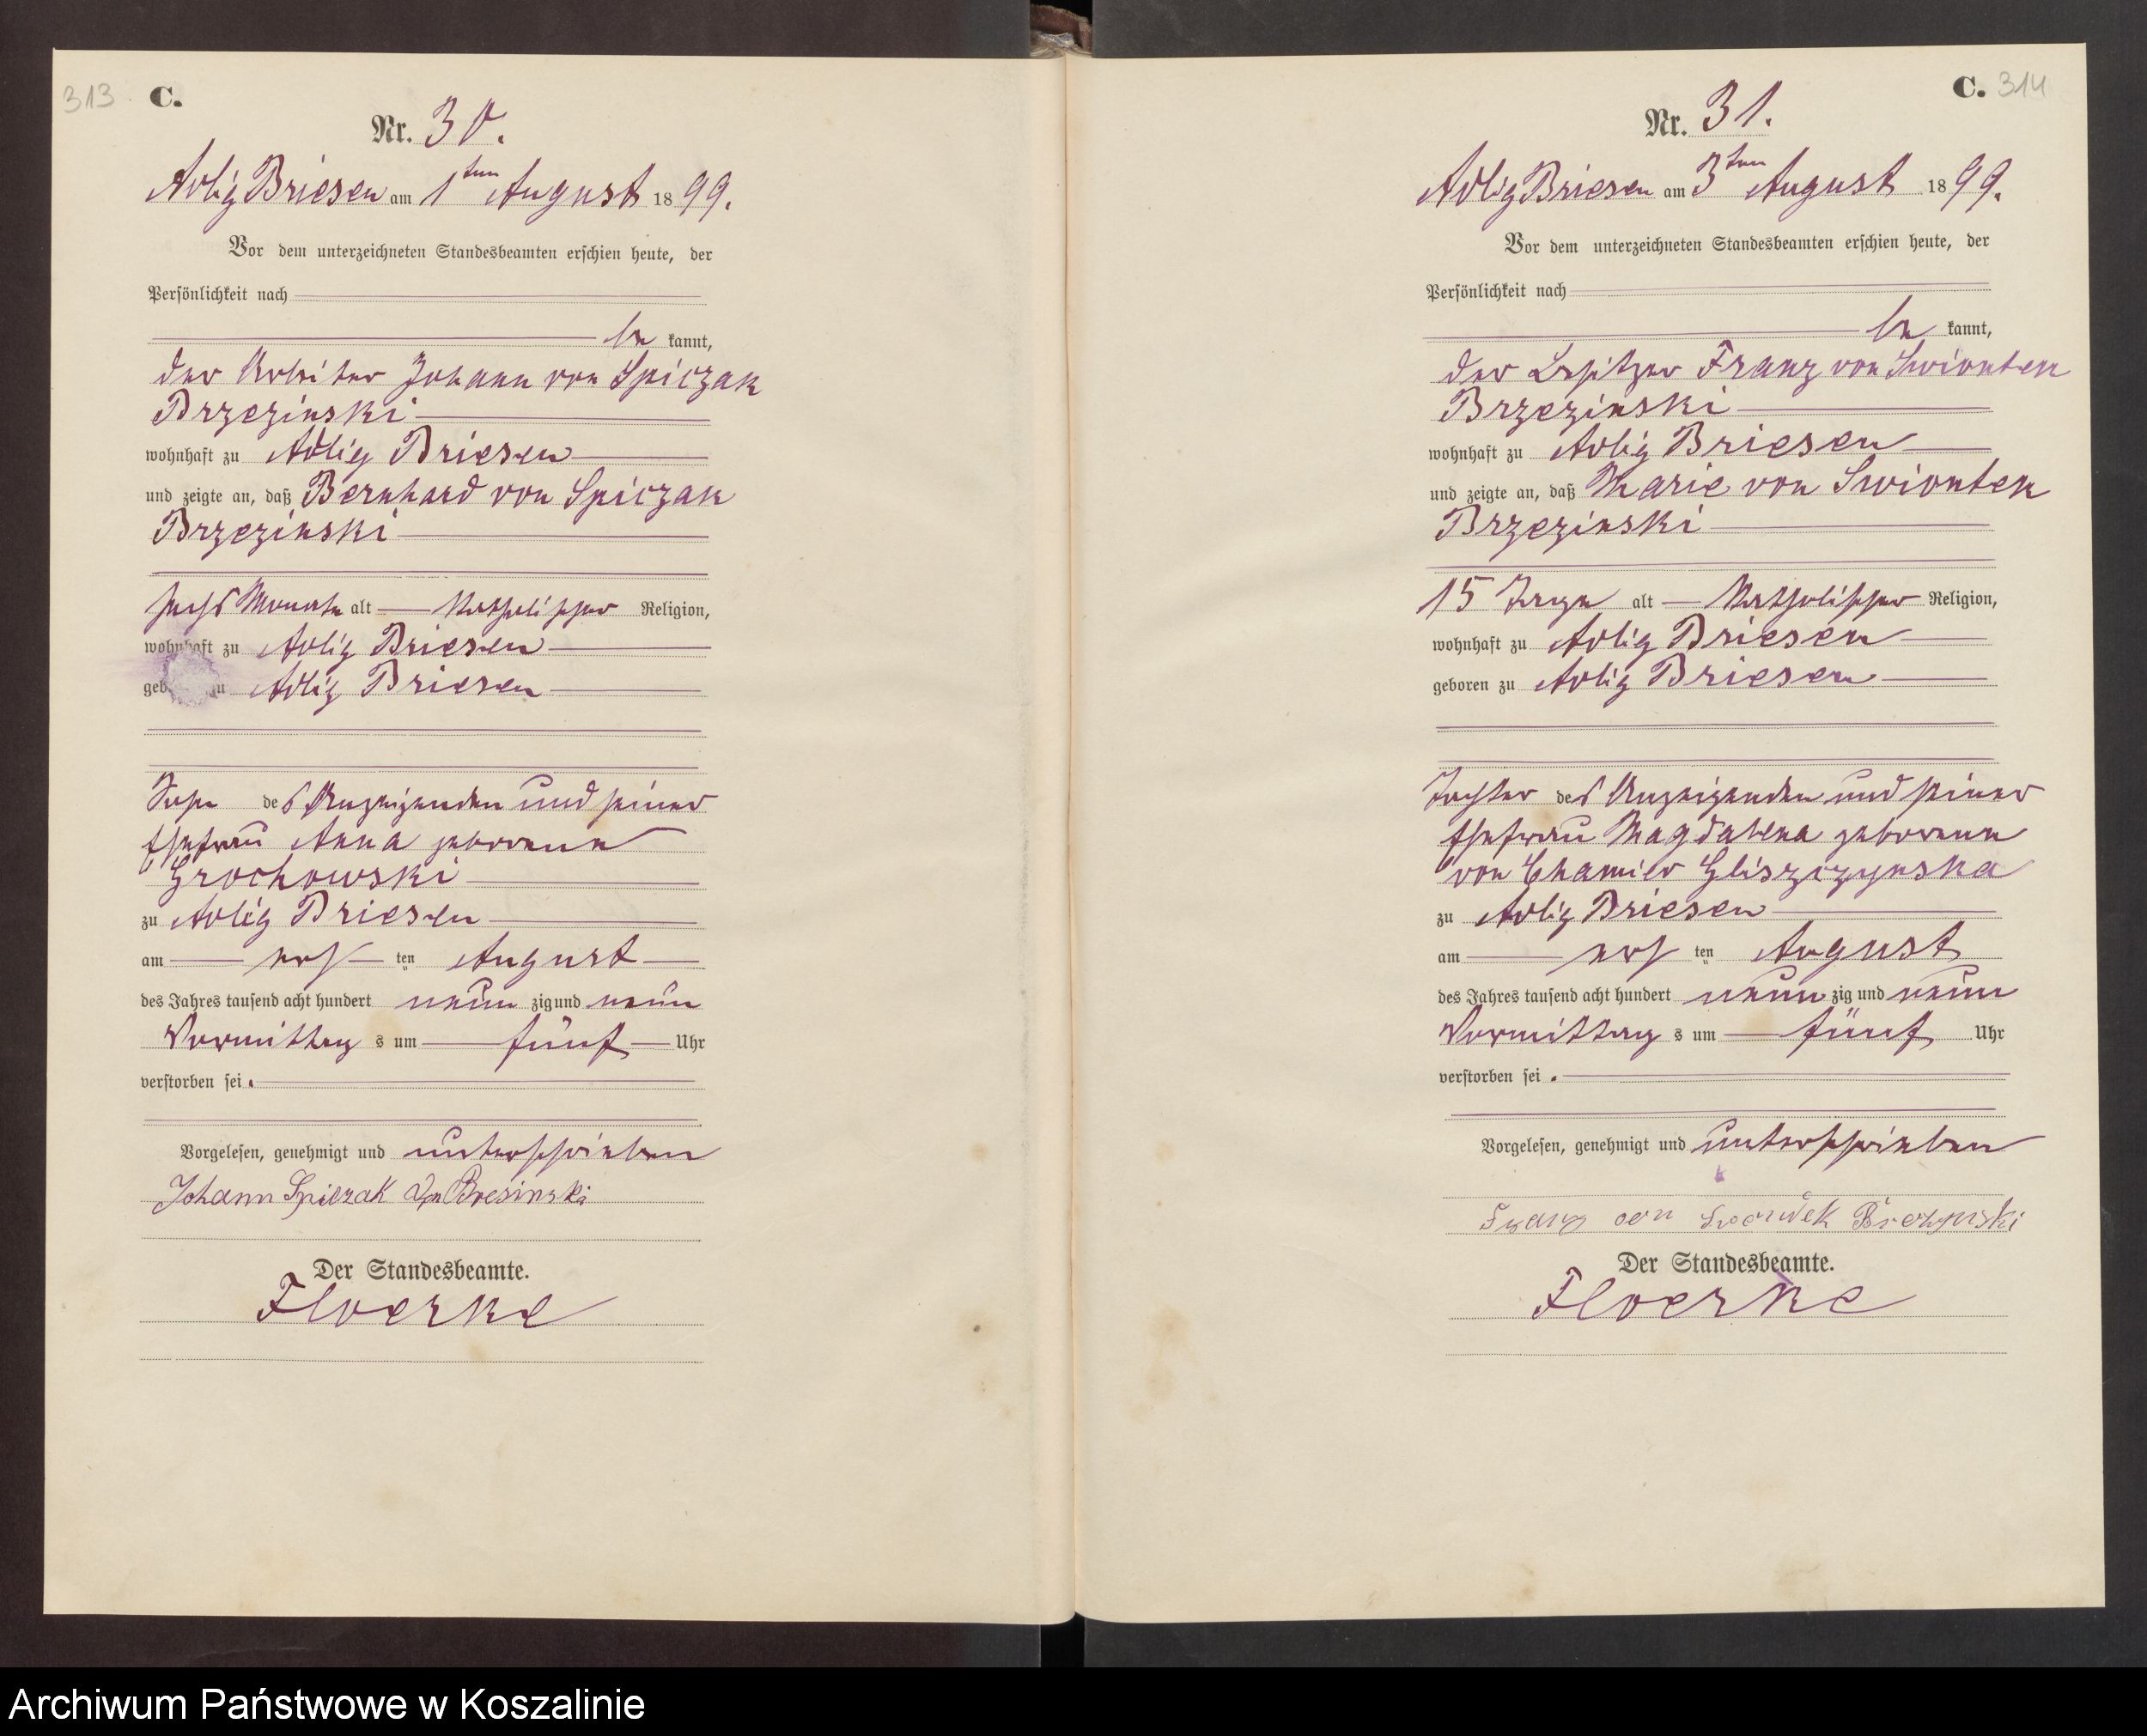 313. C.
Nr. 30.
Adlig Briesen am 1ten August 1899.
Vor dem unterzeichneten Standesbeamten erschien heute, der
Persönlichkeit nach
be kannt,
der Arbeiter Johann von Spiczak
Brzezinski
wohnhaft zu Adlig Briesen
und zeigte an, daß Bernhard von Spiczak
Brzezinski
sechs Monate alt katholischer Religion,
wohnhaft zu Adlig Briesen
geb zu Adlig Briesen
Sohn des Anzeigenden und seiner
Ehefrau Anna geborene
Grochowski
zu Adlig Briesen
am ersten August
des Jahres tausend acht hundert neunzig und neun
Vormittags um fünf Uhr
verstorben sei.
Vorgelesen, genehmigt und unterschrieben
Johann Spiczak Bresinski
Der Standesbeamte.
Floerke
C. 314
Nr. 31.
Adlig Briesen am 3ten August 1899.
Vor dem unterzeichneten Standesbeamten erschien heute, der
Persönlichkeit nach
be kannt,
der Besitzer Franz von Swiontek
Brzezinski
wohnhaft zu Adlig Briesen
und zeigte an, daß Marie von Swiontek
Brzezinski
15 Jahre alt katholischer Religion,
wohnhaft zu Adlig Briesen
geboren zu Adlig Briesen
Tochter des Anzeigenden und seiner
Ehefrau Magdalena geborene
von Chamier Gliszczynska
zu Adlig Briesen
am ersten August
des Jahres tausend acht hundert neunzig und neun
Vormittags um fünf Uhr
verstorben sei.
Vorgelesen, genehmigt und unterschrieben
Franz von
Der Standesbeamte.
Floerke
Archiwum Państwowe w Koszalinie